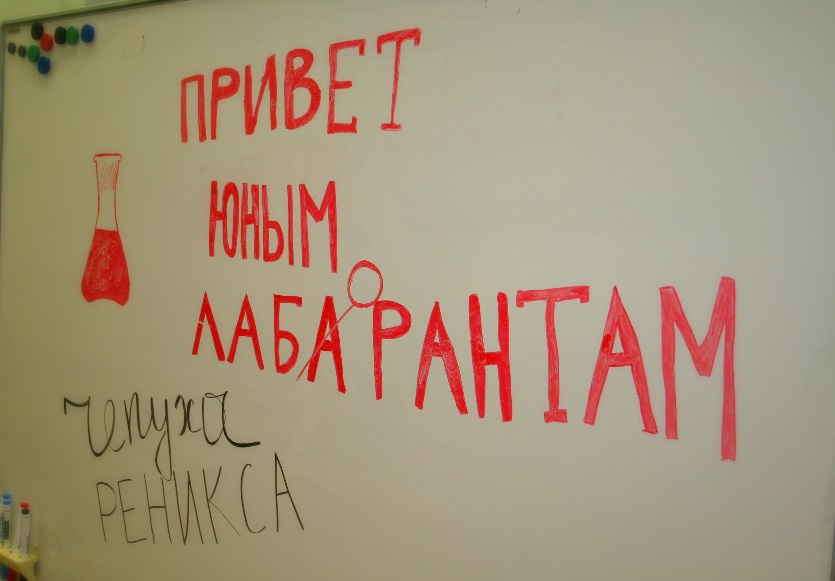 ПРИВЕТ
ЮНЫМ
ЛАБАРАНТАМ
чепуха
РЕНИКСА